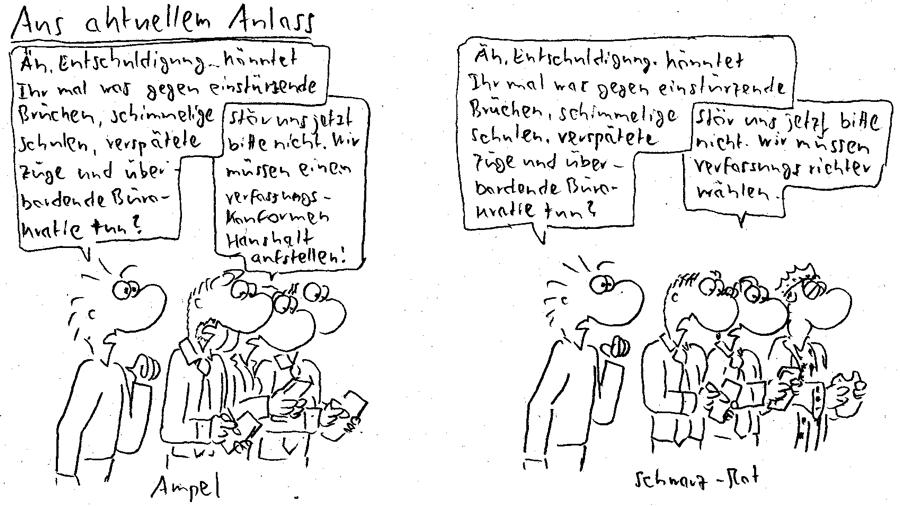 Aus aktuellem Anlass
Äh, Entschuldigung.. könntet
Ihr mal was gegen einstürzende
Brücken, schimmelige
schulen, verspätete
züge und über-
bordende Büro-
kratie tun?
Stör uns jetzt
bitte nicht. Wir
müssen einen
verfassungs-
Konformen
Haushalt
aufstellen!
Ampel
Äh, Entschuldigung. könntet
Ihr mal was gegen einstürzende
Brücken, schimmelige
schulen, verspätete
züge und über-
bordende Büro-
kratie tun?
Stör uns jetzt bitte
nicht. Wir müssen
verfassungsrichter
wählen.
Schwarz-Rot